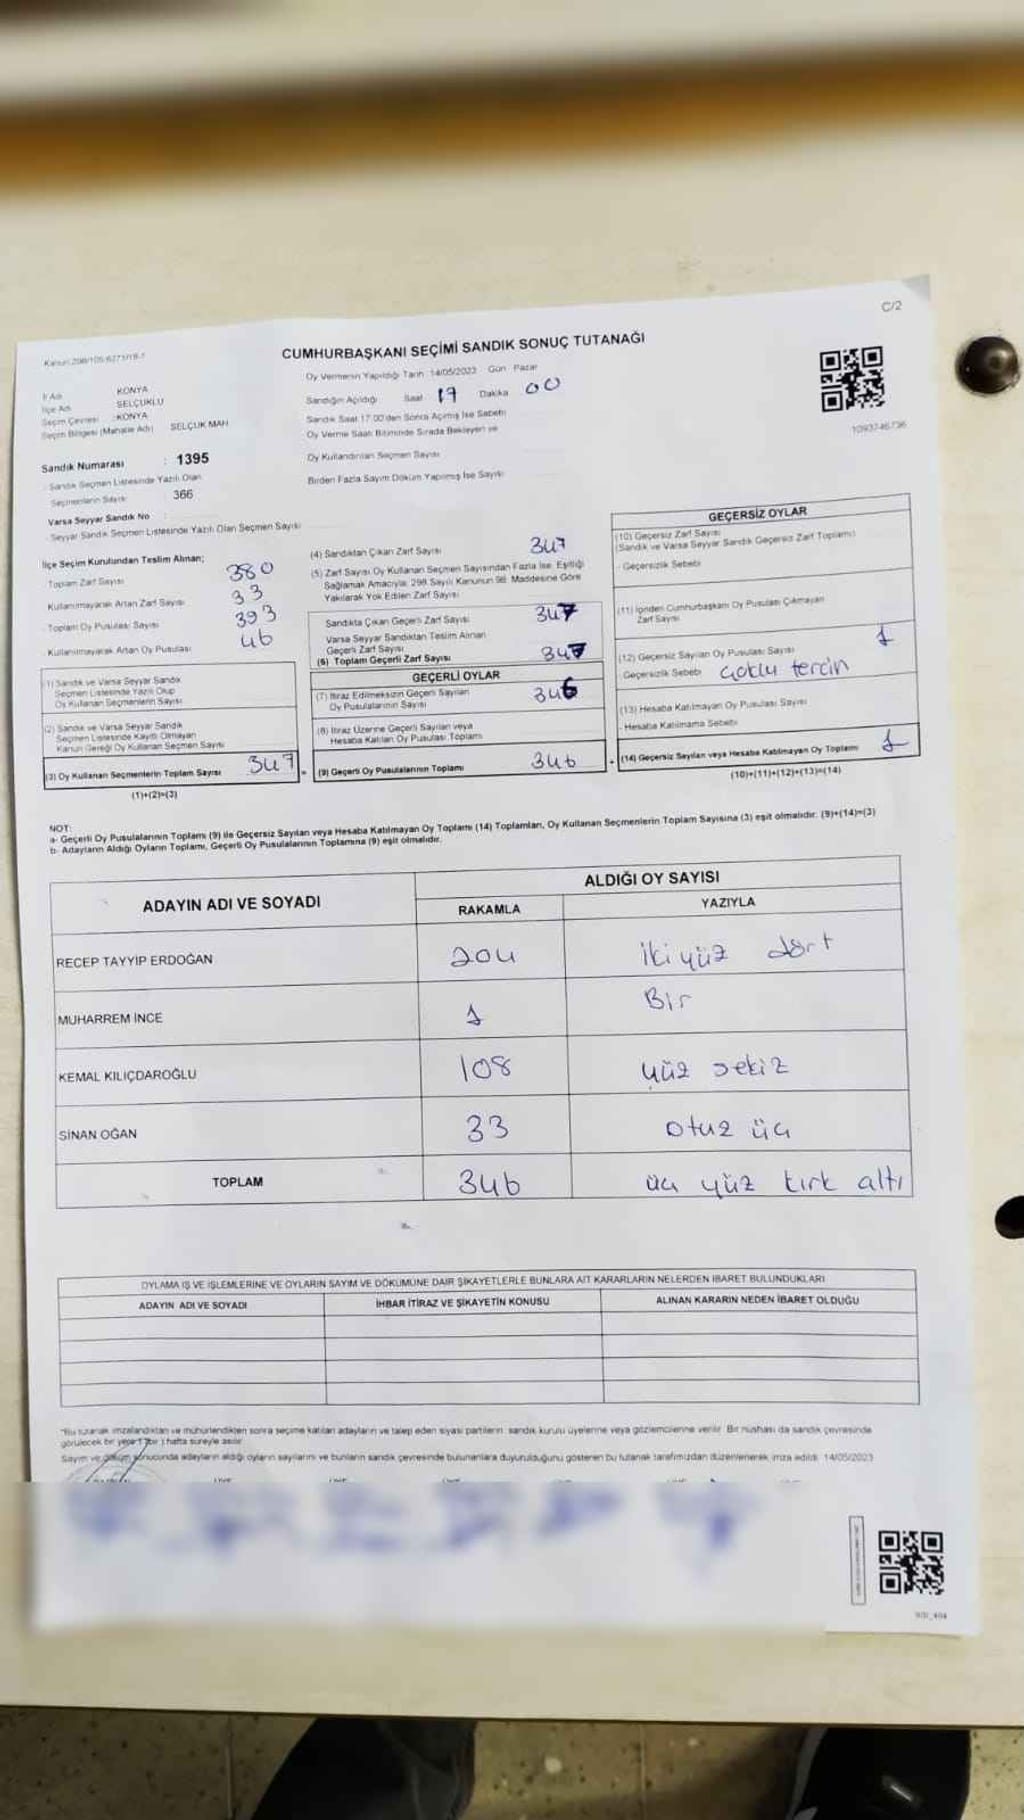 C/2
CUMHURBAŞKANI SEÇİMİ SANDIK SONUÇ TUTANAĞI
Oy Vermenin Yapıldığı Tarih: 14/05/2023 Gün Pazar
İl Adı KONYA
İlçe Adı SELÇUKLU
Seçim Çevresi KONYA
Seçim Bölgesi (Mahalle Adı) SELÇUK MAH
Sandığın Açıldığı Saat 17 Dakika 00
Sandık Saat 17.00'den Sonra Açılmış İse Sebebi
Oy Verme Saati Bitiminde Sırada Bekleyen ve
Oy Kullandırılan Seçmen Sayısı
Birden Fazla Sayım Döküm Yapılmış İse Sayısı
1093746736
Sandık Numarası : 1395
Sandık Seçmen Listesinde Yazılı Olan
Seçmenlerin Sayısı 366
Varsa Seyyar Sandık No
Seyyar Sandık Seçmen Listesinde Yazılı Olan Seçmen Sayısı
İlçe Seçim Kurulundan Teslim Alınan;
Toplam Zarf Sayısı 380
Kullanılmayarak Artan Zarf Sayısı 33
Toplam Oy Pusulası Sayısı 393
Kullanılmayarak Artan Oy Pusulası 46
(1) Sandık ve Varsa Seyyar Sandık
Seçmen Listesinde Yazılı Olup
Oy Kullanan Seçmenlerin Sayısı
(2) Sandık ve Varsa Seyyar Sandık
Seçmen Listesinde Kayıtlı Olmayan
Kanun Gereği Oy Kullanan Seçmen Sayısı
(3) Oy Kullanan Seçmenlerin Toplam Sayısı 347
(1)+(2)=(3)
(4) Sandıktan Çıkan Zarf Sayısı 347
(5) Zarf Sayısı Oy Kullanan Seçmen Sayısından Fazla İse, Eşitliği
Sağlamak Amacıyla; 298 Sayılı Kanunun 98. Maddesine Göre
Yakılarak Yok Edilen Zarf Sayısı
Sandıkta Çıkan Geçerli Zarf Sayısı 347
Varsa Seyyar Sandıktan Teslim Alınan
Geçerli Zarf Sayısı
(6) Toplam Geçerli Zarf Sayısı 347
GEÇERLİ OYLAR
(7) İtiraz Edilmeksizin Geçerli Sayılan
Oy Pusulalarının Sayısı 346
(8) İtiraz Üzerine Geçerli Sayılan veya
Hesaba Katılan Oy Pusulası Toplamı
(9) Geçerli Oy Pusulalarının Toplamı 346
GEÇERSİZ OYLAR
(10) Geçersiz Zarf Sayısı
(Sandık ve Varsa Seyyar Sandık Geçersiz Zarf Toplamı)
Geçersizlik Sebebi
(11) İçinden Cumhurbaşkanı Oy Pusulası Çıkmayan
Zarf Sayısı
(12) Geçersiz Sayılan Oy Pusulası Sayısı 1
Geçersizlik Sebebi Çoklu tercih
(13) Hesaba Katılmayan Oy Pusulası Sayısı
Hesaba Katılmama Sebebi
(14) Geçersiz Sayılan veya Hesaba Katılmayan Oy Toplamı 1
(10)+(11)+(12)+(13)=(14)
NOT:
a- Geçerli Oy Pusulalarının Toplamı (9) ile Geçersiz Sayılan veya Hesaba Katılmayan Oy Toplamı (14) Toplamları, Oy Kullanan Seçmenlerin Toplam Sayısına (3) eşit olmalıdır. (9)+(14)=(3)
b- Adayların Aldığı Oyların Toplamı, Geçerli Oy Pusulalarının Toplamına (9) eşit olmalıdır.
ADAYIN ADI VE SOYADI ALDIĞI OY SAYISI
RAKAMLA YAZIYLA
RECEP TAYYİP ERDOĞAN 204 iki yüz dört
MUHARREM İNCE 1 Bir
KEMAL KILIÇDAROĞLU 108 yüz sekiz
SİNAN OĞAN 33 otuz üç
TOPLAM 346 üç yüz kırk altı
OYLAMA İŞ VE İŞLEMLERİNE VE OYLARIN SAYIM VE DÖKÜMÜNE DAİR ŞİKAYETLERLE BUNLARA AİT KARARLARIN NELERDEN İBARET BULUNDUKLARI
ADAYIN ADI VE SOYADI İHBAR İTİRAZ VE ŞİKAYETİN KONUSU ALINAN KARARIN NEDEN İBARET OLDUĞU
*Bu tutanak imzalandıktan ve mühürlendikten sonra seçime katılan adayların ve talep eden siyasi partilerin sandık kurulu üyelerine veya gözlemcilerine verilir. Bir nüshası da sandık çevresinde
görülecek bir yere 1 (bir) hafta süreyle asılır
Sayım ve döküm sonucunda adayların aldığı oyların sayılarını ve bunların sandık çevresinde bulunanlara duyurulduğunu gösteren bu tutanak tarafımızdan düzenlenerek imza edildi. 14/05/2023